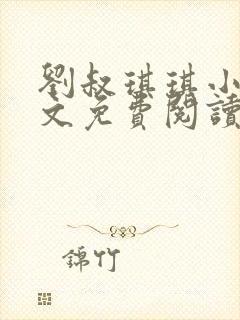 劉叔琪琪小
文免費閱讀
錦竹